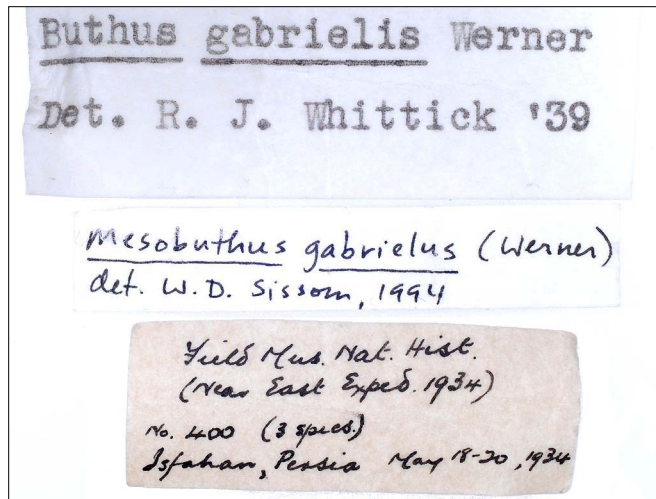 Buthus gabrielis Werner
Det. R. J. Whittick '39
Mesobuthus gabrielus (Werner)
det. W.D. Sissom, 1994
Field Mus. Nat. Hist.
(Near East Exped. 1934)
No. 400 (3 specs.)
Isfahan, Persia May 18-20, 1934